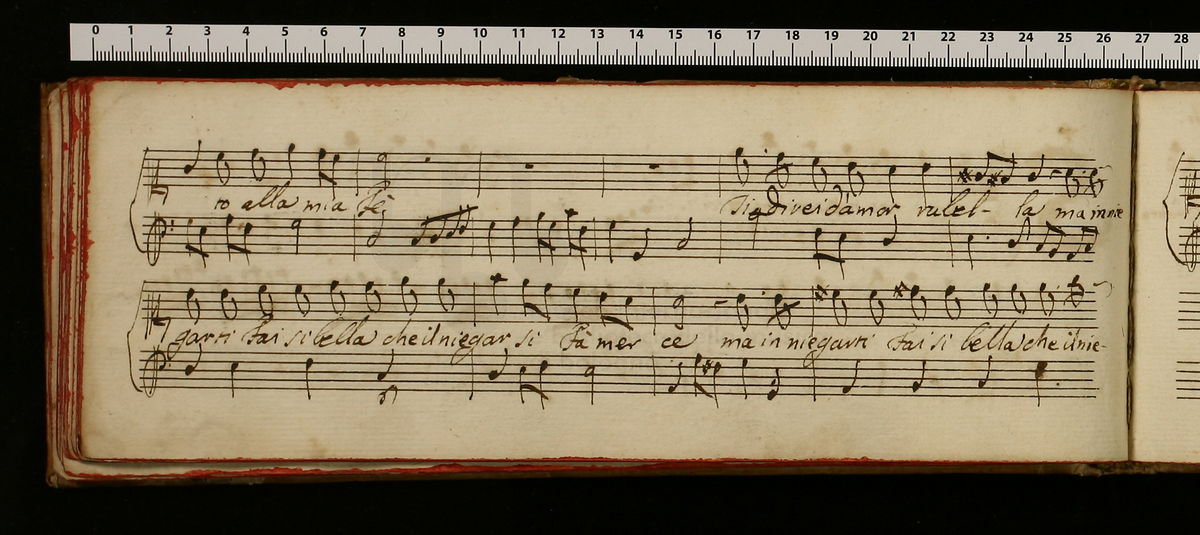 0 1 2 3 4 5 6 7 8 9 10 11 12 13 14 15 16 17 18 19 20 21 22 23 24 25 26 27 28
to alla mia fè, direi d'amor rubel- la ma in nie
garti fai si bella che il niegar si fà mer ce ma in niegarti fai si bella che il nie-